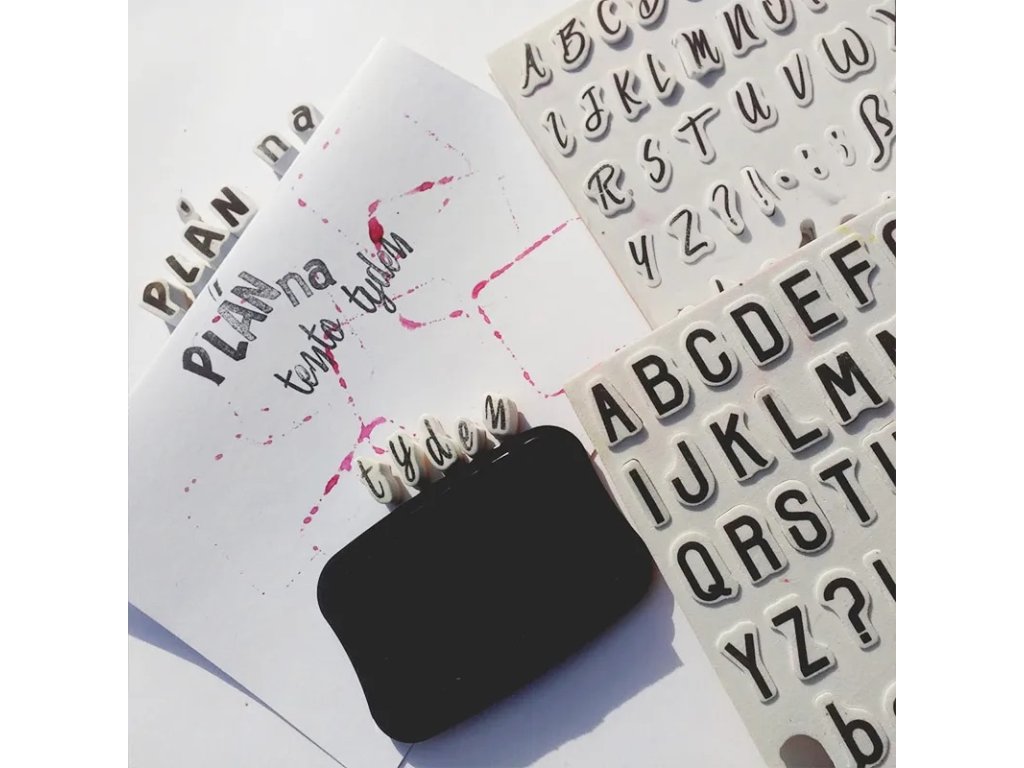 PLÁN na
PLÁN na
tento týden
tyden
A B C D
I J K L M N O
R S T U V W
Y Z ? ! . : ; ß
A B C D E F
I J K L M
Q R S T
Y Z ? !
b